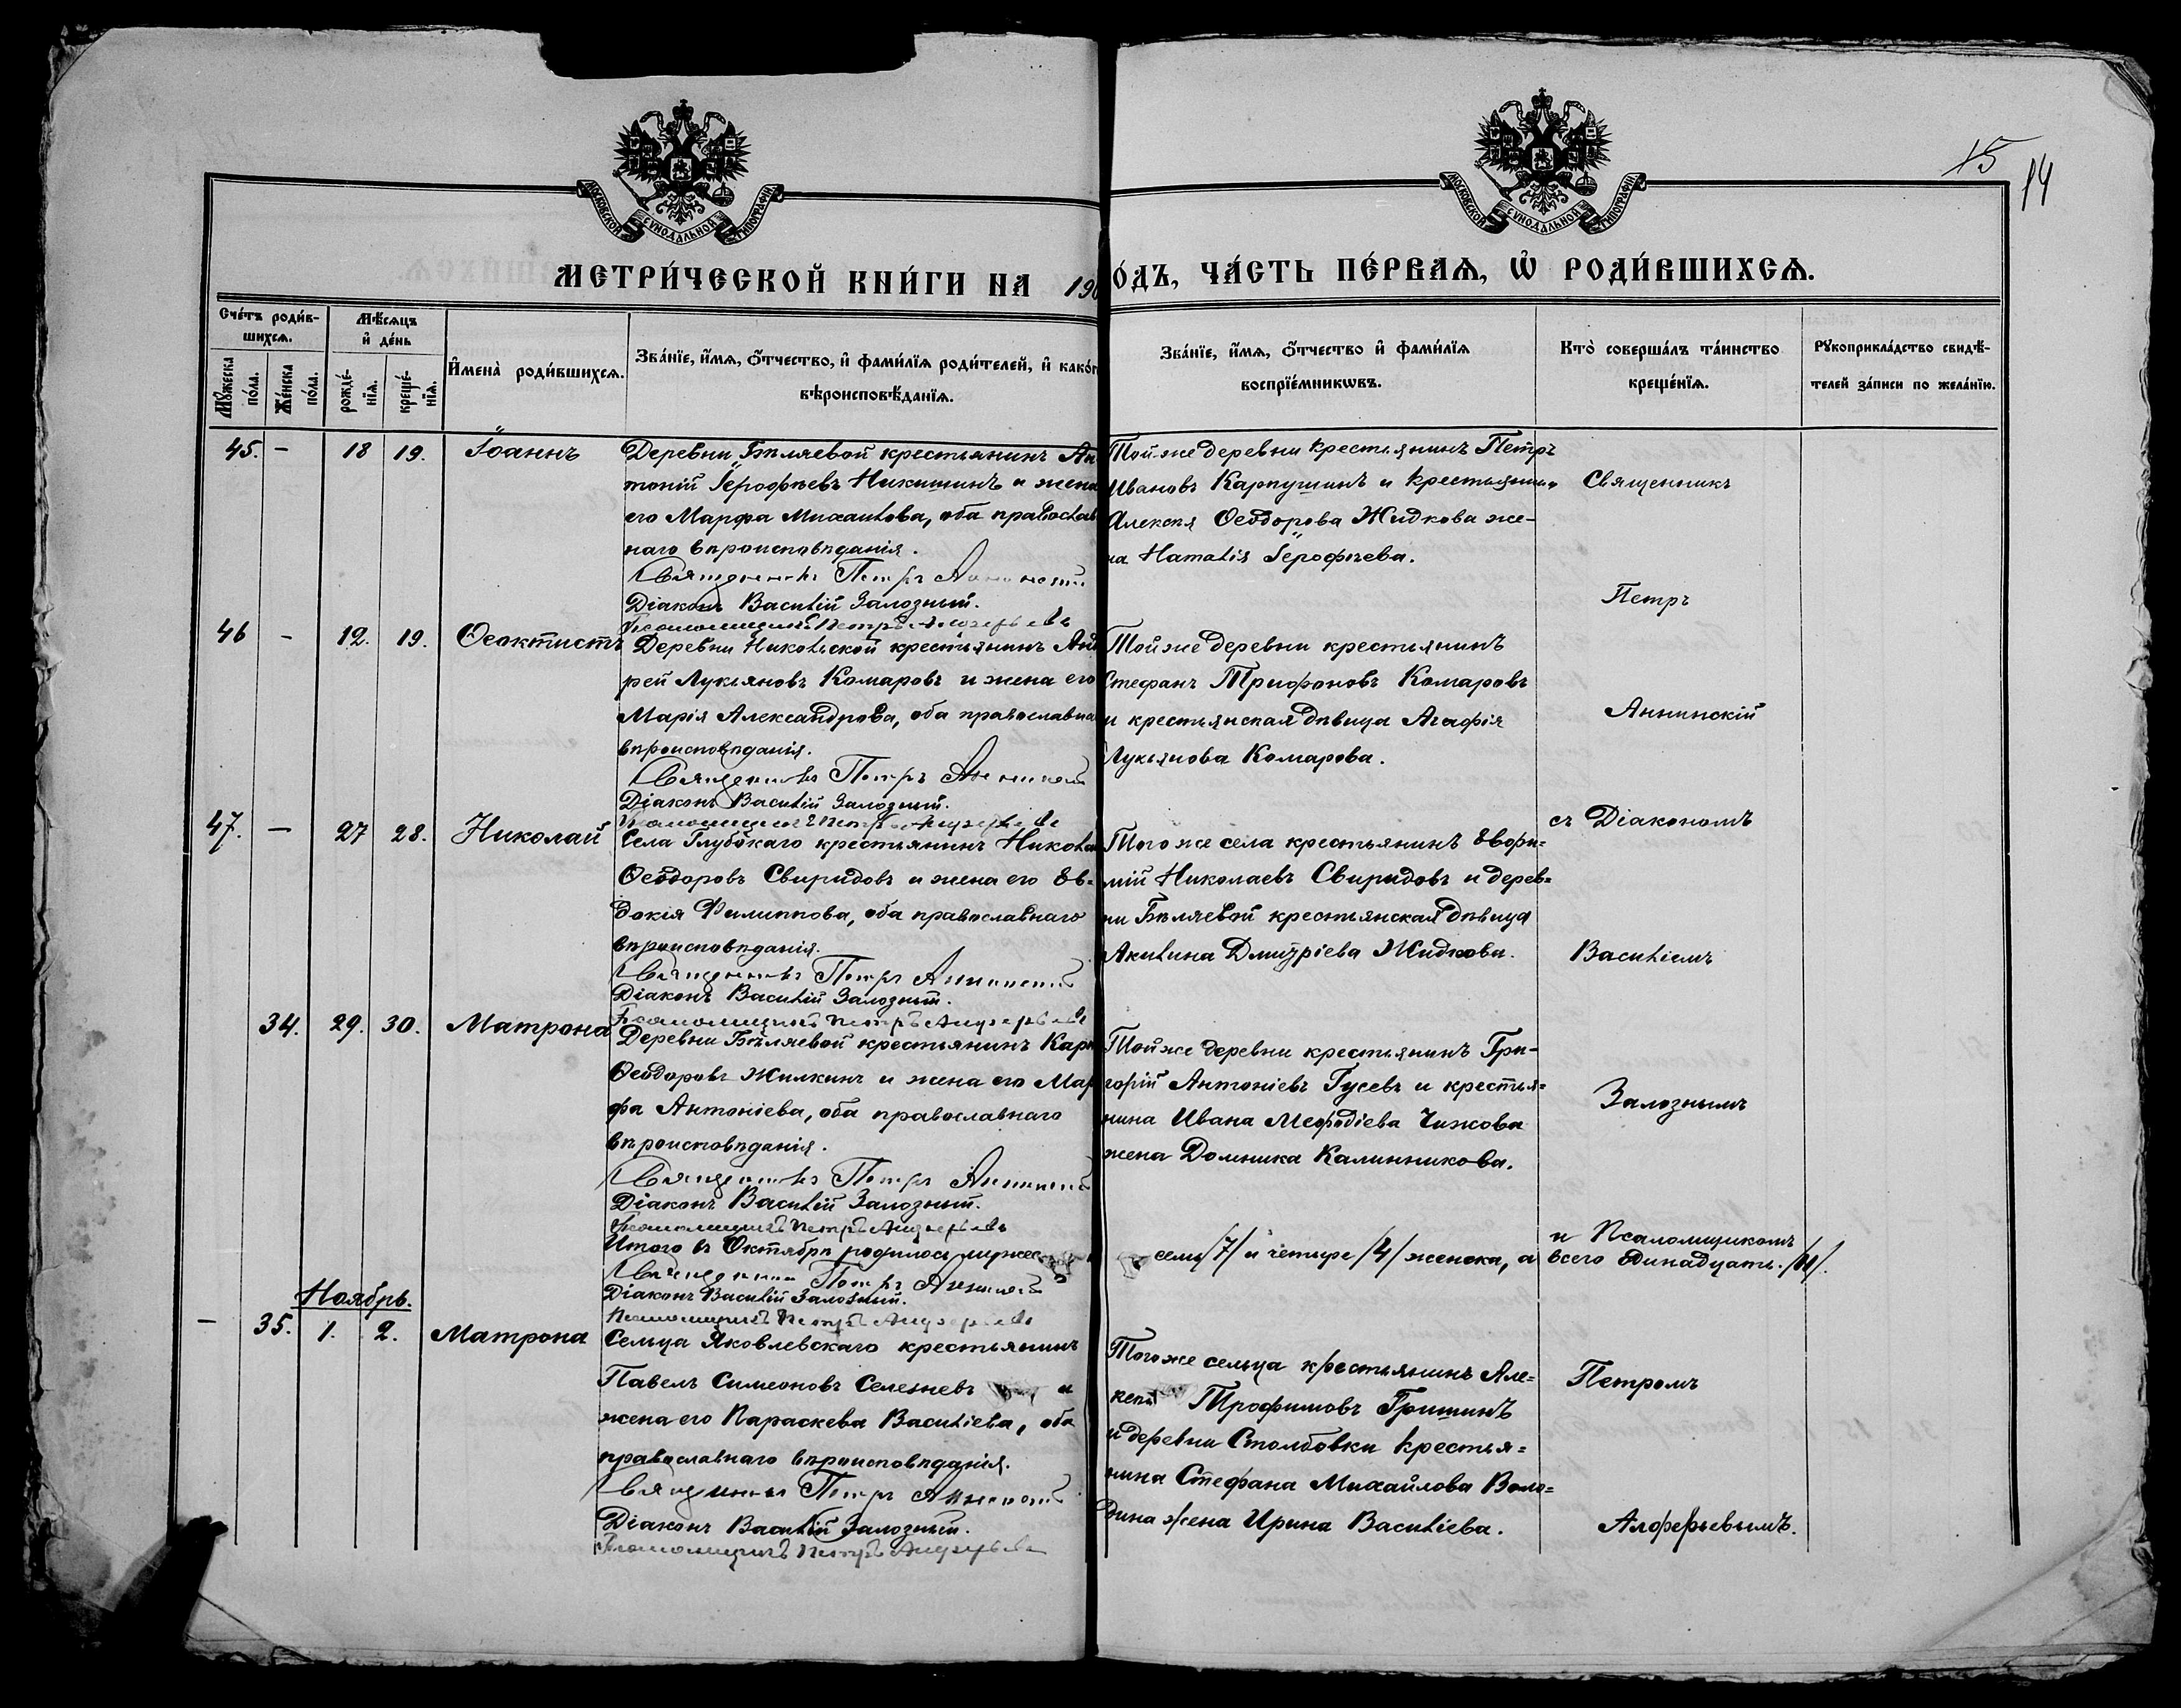 15 14
МОСКОВСКОЙ СѴНОДАЛЬНОЙ ТИПОГРАФІИ
МОСКОВСКОЙ СѴНОДАЛЬНОЙ ТИПОГРАФІИ
МЕТРИ́ЧЕСКОЙ КНИ́ГИ НА 190
О́ДЪ, ЧА́СТЬ ПЕ́РВАѦ, Ѡ҆ РОДИ́ВШИХСѦ.
Сче́тъ роди́в-
шихсѧ.
Мꙋ́жеска по́ла.
Же́нска по́ла.
Мѣ́сѧцъ
и҆ де́нь
рожде́-
нїѧ.
креще́-
нїѧ.
И҆мена̀ роди́вшихсѧ.
Зва́нїе, и҆́мѧ, ѻ҆́тчество, и҆ фами́лїѧ роди́телей, и҆ како́г
вѣроисповѣ́данїѧ.
Зва́нїе, и҆́мѧ, ѻ҆́тчество и҆ фами́лїѧ
воспрїе́мникѡвъ.
Кто̀ соверша́лъ та́инство
креще́нїѧ.
Рꙋкоприкла́дство свидѣ́-
телей за́писи по жела́нїю.
45. – 18 19. Іоаннъ
Деревни Бѣляевой крестьянинъ Ан
тоній Іерофѣевъ Никишинъ и жена
его Марфа Михаилова, оба православ
наго вѣроисповѣданія.
Священникъ Петръ Аннинскій
Діаконъ Василій Залозный.
Псаломщикъ Петръ Алферьевъ
Той же деревни крестьянинъ Петръ
Ивановъ Карпушинъ и крестьянина
Алексѣя Ѳеодорова Жидкова же-
на Наталія Іерофѣева.
46 – 12. 19. Ѳеоктистъ
Деревни Никольской крестьянинъ Анд
рей Лукьяновъ Комаровъ и жена его
Марія Александрова, оба православна
вѣроисповѣданія.
Священникъ Петръ Аннинскій
Діаконъ Василій Залозный.
Псаломщикъ Петръ Алферьевъ
Той же деревни крестьянинъ
Стефанъ Трифоновъ Комаровъ
и крестьянская дѣвица Агафія
Лукьянова Комарова.
47. – 27 28. Николай
Села Глубокаго крестьянинъ Никола
Ѳеодоровъ Свиридовъ и жена его Ев-
докія Филиппова, оба православнаго
вѣроисповѣданія.
Священникъ Петръ Аннинскій
Діаконъ Василій Залозный.
Псаломщикъ Петръ Алферьевъ
Того же села крестьянинъ Евфи=
мій Николаевъ Свиридовъ и дерев=
ни Бѣляевой крестьянская дѣвица
Акилина Димитріева Жидкова.
34. 29. 30. Матрона
Деревни Бѣляевой крестьянинъ Карп
Ѳеодоровъ Жилкинъ и жена его Мар
фа Антоніева, оба православнаго
вѣроисповѣданія.
Священникъ Петръ Аннинскій
Діаконъ Василій Залозный.
Псаломщикъ Петръ Алферьевъ
Той же деревни крестьянинъ Гри-
горій Антоніевъ Гусевъ и крестья=
нина Ивана Меѳодіева Чижова
жена Домника Калинникова.
Итого въ Октябрѣ родилось мужес
семь /7/ и четыре /4/ женска, а всего одинадцать. /11/.
Священникъ Петръ Аннинскій
Діаконъ Василій Залозный.
Псаломщикъ Петръ Алферьевъ
Ноябрь.
– 35. 1. 2. Матрона
Сельца Яковлевскаго крестьянинъ
Павелъ Симеоновъ Селезневъ и
жена его Параскева Василіева, оба
православнаго вѣроисповѣданія.
Священникъ Петръ Аннинскій
Діаконъ Василій Залозный.
Псаломщикъ Петръ Алферьевъ
Того же сельца крестьянинъ Але-
ксѣй Трофимовъ Гришинъ
и деревни Столбовки крестья=
нина Стефана Михайлова Воло=
дина жена Ирина Василіева.
Священникъ
Петръ
Аннинскій
съ Діакономъ
Василіемъ
Залознымъ
и Псаломщикомъ
Петромъ
Алферьевымъ.